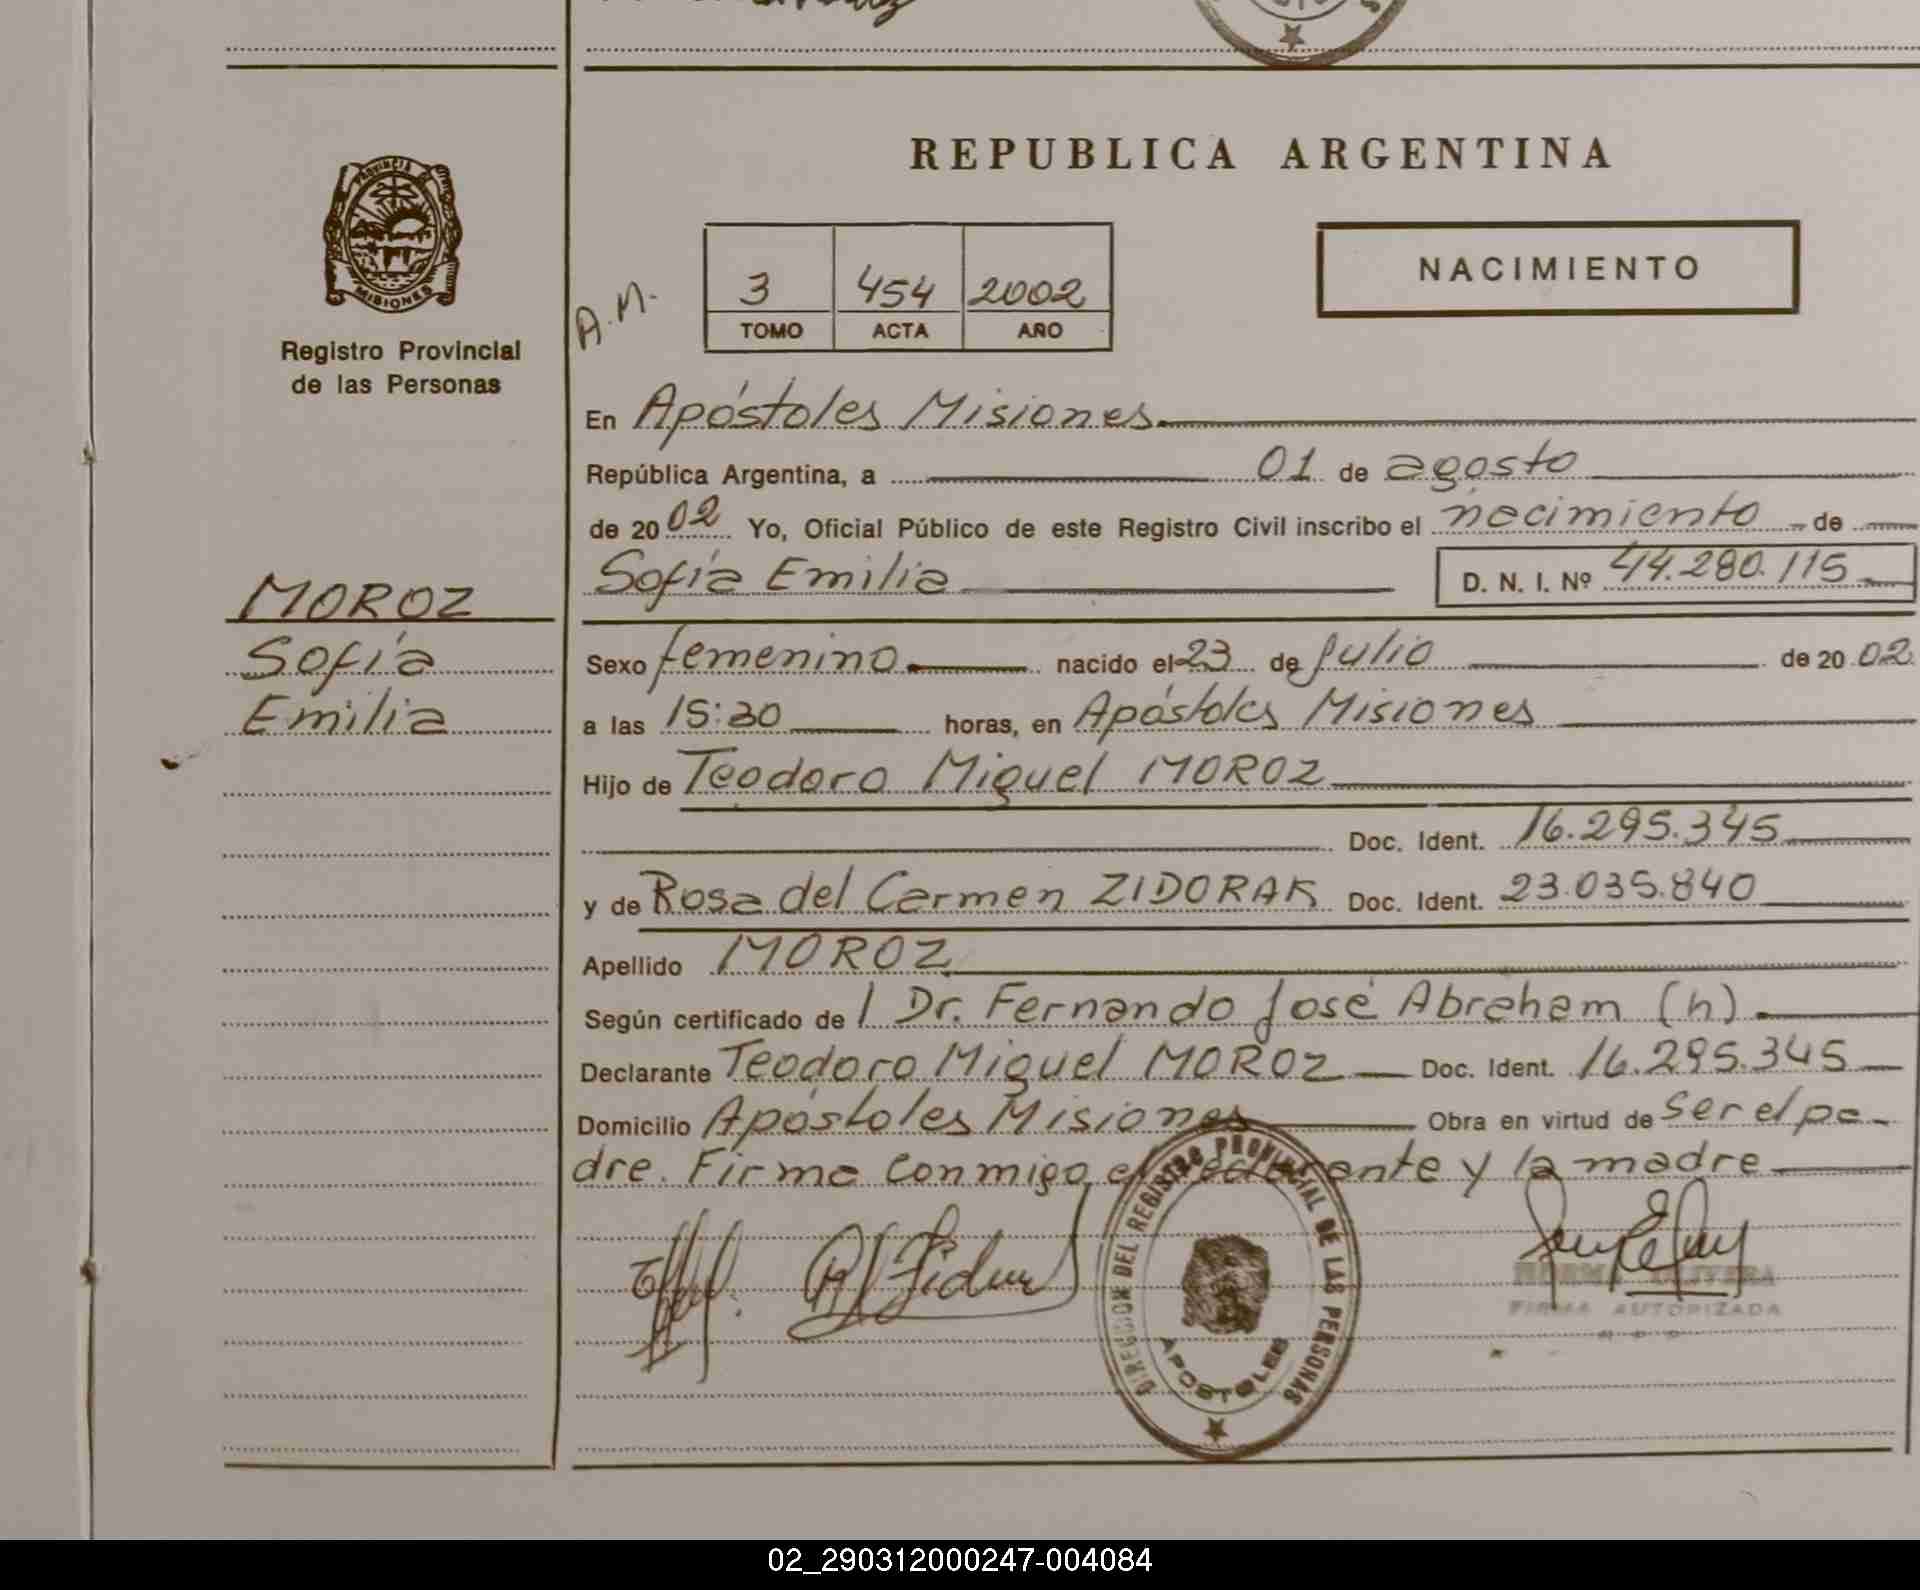 REPUBLICA ARGENTINA
PROVINCIA DE
MISIONES
Registro Provincial
de las Personas
A.M.
3 454 2002
TOMO ACTA AÑO
NACIMIENTO
En Apóstoles Misiones
República Argentina, a 01 de agosto
de 2002 Yo, Oficial Público de este Registro Civil inscribo el nacimiento de
Sofía Emilia D. N. I. Nº 44.280.115
MOROZ
Sofía
Emilia
Sexo femenino nacido el 23 de Julio de 2002
a las 15:30 horas, en Apóstoles Misiones
Hijo de Teodoro Miguel MOROZ
Doc. Ident. 16.295.345
y de Rosa del Carmen ZIDORAK Doc. Ident. 23.035.840
Apellido MOROZ
Según certificado de l Dr. Fernando José Abraham (h)
Declarante Teodoro Miguel MOROZ Doc. Ident. 16.295.345
Domicilio Apóstoles Misiones Obra en virtud de ser el pa-
dre. Firma conmigo el declarante y la madre
DIRECCION DEL REGISTRO PROVINCIAL DE LAS PERSONAS
APOSTOLES
NORMA OLIVERA
FIRMA AUTORIZADA
02_290312000247-004084